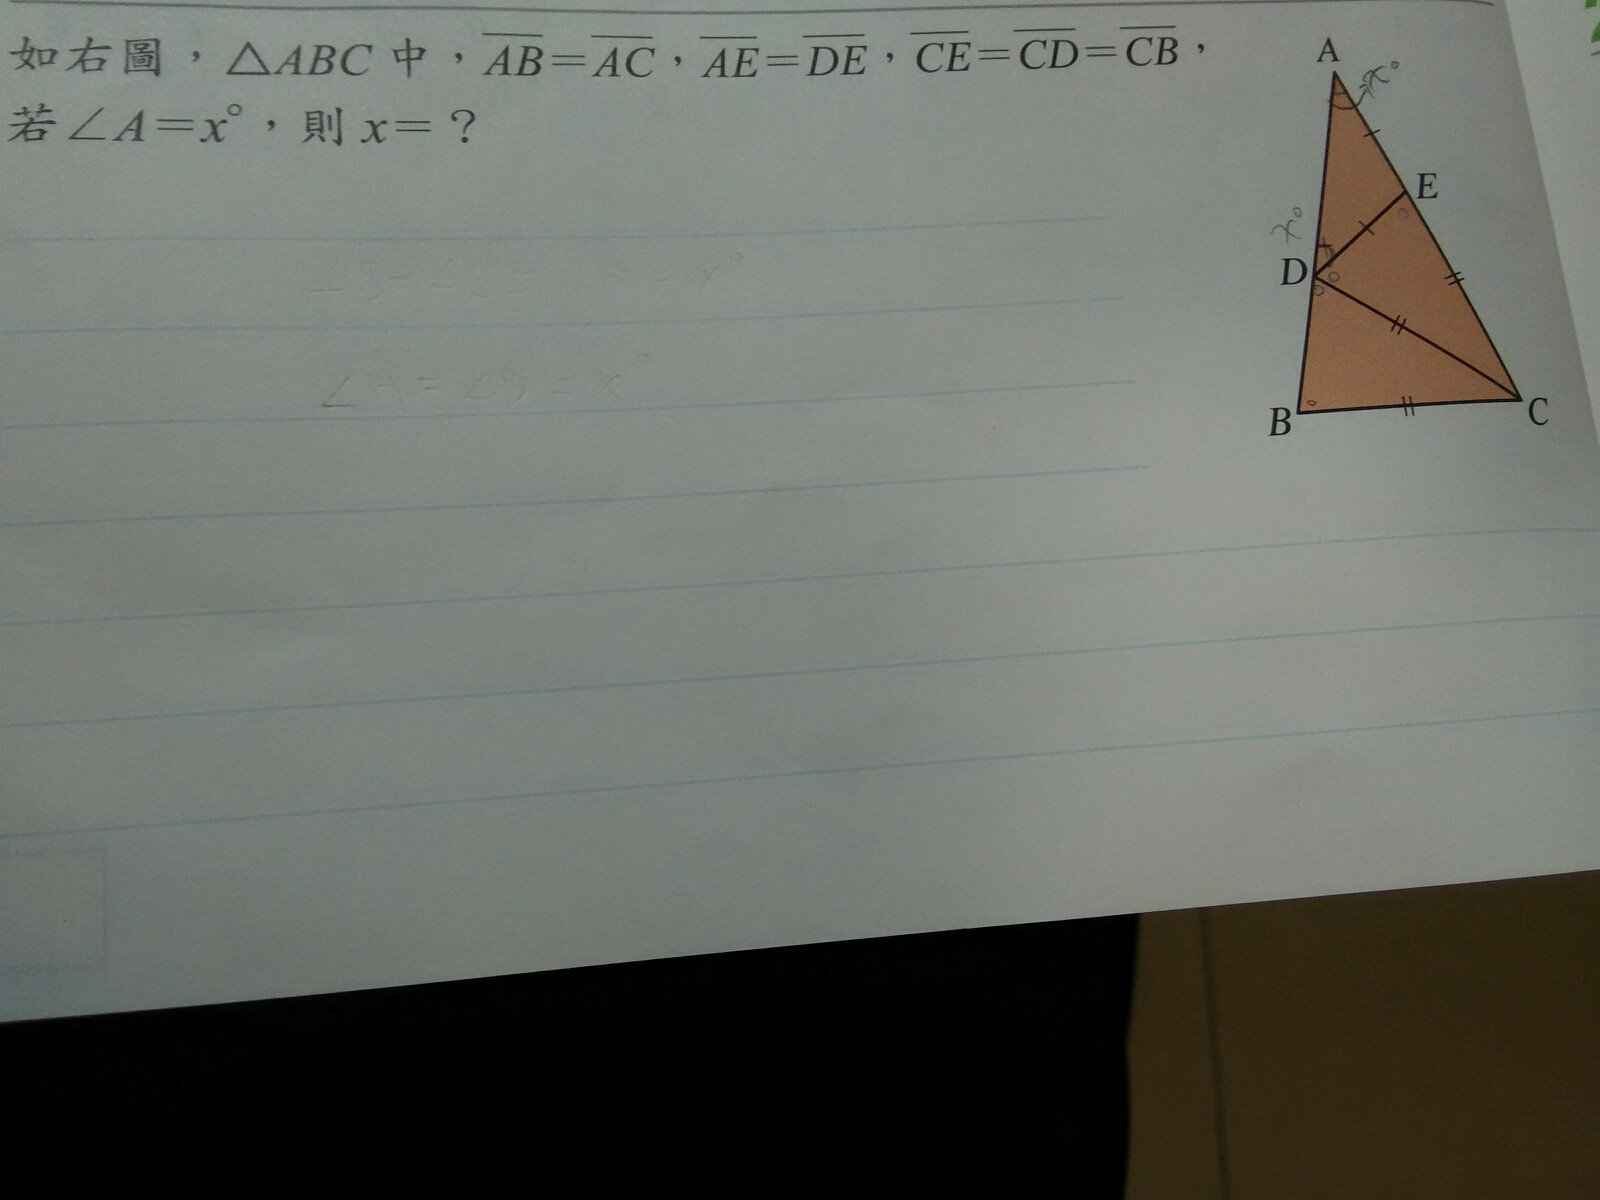 如右圖，△ABC 中，AB＝AC，AE＝DE，CE＝CD＝CB，
若∠A＝x°，則 x＝？
A
x°
E
x°
D
B
C